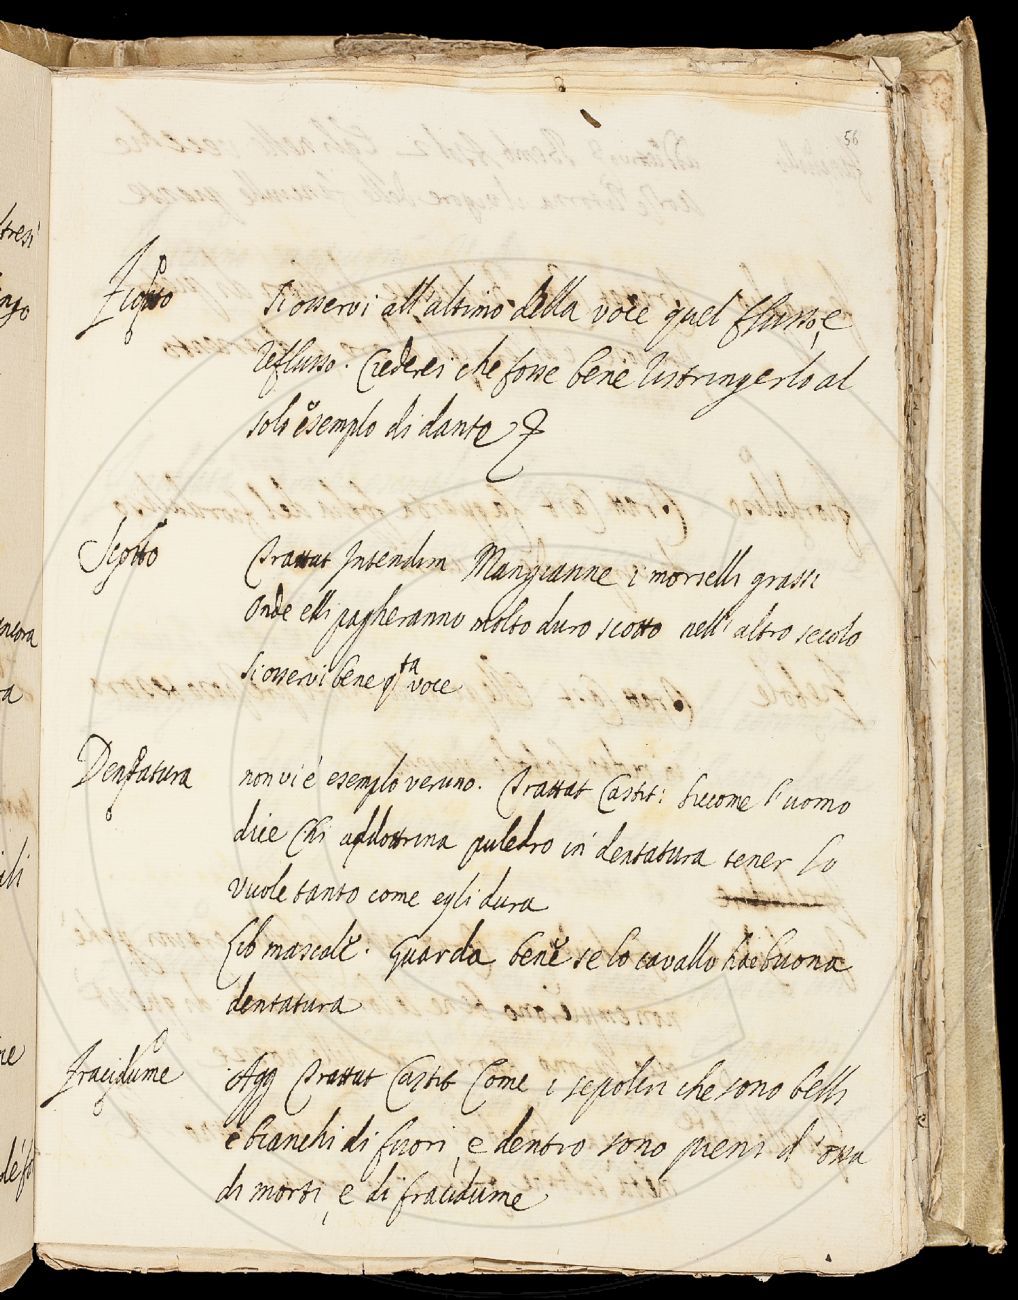 56
Fiotto Si osservi all'ultimo della voce quel flusso, e
reflusso. Crederei che fosse bene ristringerlo al
solo esemplo di dante
Scotto Trattat Intendim Mangianne i morselli grassi
Onde elli pagheranno molto duro scotto nell'altro secolo
Si osservi bene qta voce
Dentatura non vi è esemplo veruno. Trattat Castit: Siccome l'uomo
dice Chi addottrina puledro in dentatura tener lo
vuole tanto come egli dura
Lib mascalc. Guarda bene se lo cavallo hae buona
dentatura
Fracidume Agg Trattat Castit Come i sepolcri che sono belli
e bianchi di fuori, e dentro sono pieni d'ossa
di morti, e di fracidume